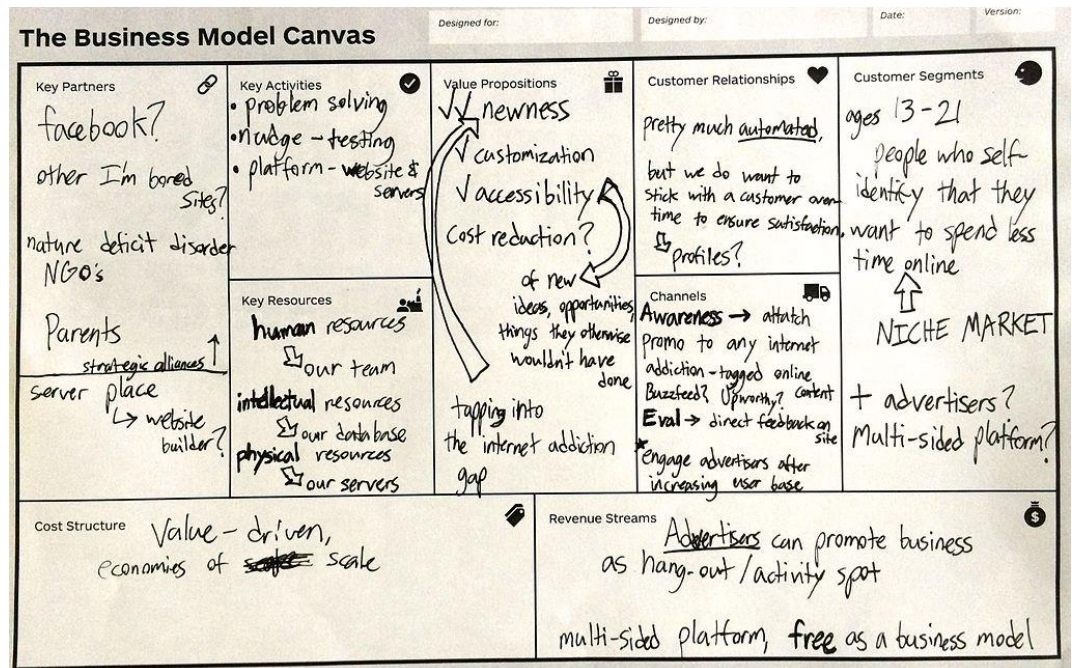 The Business Model Canvas
Designed for:
Designed by:
Date:
Version:
Key Partners
facebook?
other I'm bored
sites?
nature deficit disorder
NGO's
Parents
strategic alliances
server place
website
builder?
Key Activities
• problem solving
• nudge - testing
• platform - website &
servers
Key Resources
human resources
our team
intellectual resources
our database
physical resources
our servers
Value Propositions
newness
customization
accessibility
cost reduction?
of new
ideas, opportunities,
things they otherwise
wouldn't have
done
tapping into
the internet addiction
gap
Customer Relationships
pretty much automated,
but we do want to
stick with a customer over
time to ensure satisfaction.
profiles?
Channels
Awareness → attatch
promo to any internet
addiction-tagged online
Buzzfeed? Upworthy? content
Eval → direct feedback on
site
* engage advertisers after
increasing user base
Customer Segments
ages 13-21
people who self-
identify that they
want to spend less
time online
NICHE MARKET
+ advertisers?
Multi-sided platform?
Cost Structure
Value - driven,
economies of scale
Revenue Streams
Advertisers can promote business
as hang-out/activity spot
multi-sided platform, free as a business model